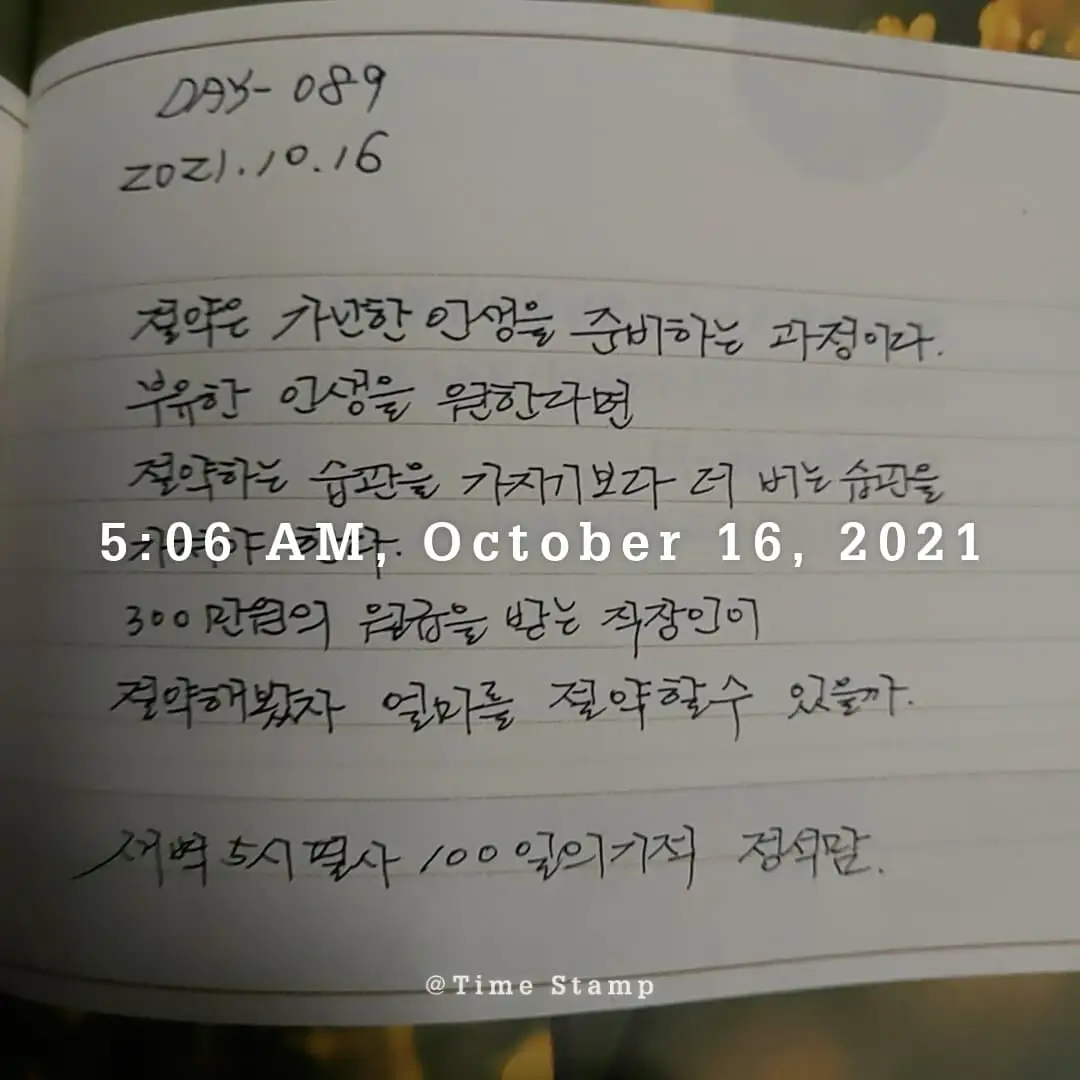 DAY- 089
2021.10.16
절약은 가난한 인생을 준비하는 과정이다.
부유한 인생을 원한다면
절약하는 습관을 가지기보다 더 버는 습관을
5:06 AM, October 16, 2021
300만원의 월급을 받는 직장인이
절약해봤자 얼마를 절약할수 있을까.
새벽 5시 필사 100일의기적 정석맘.
@Time Stamp